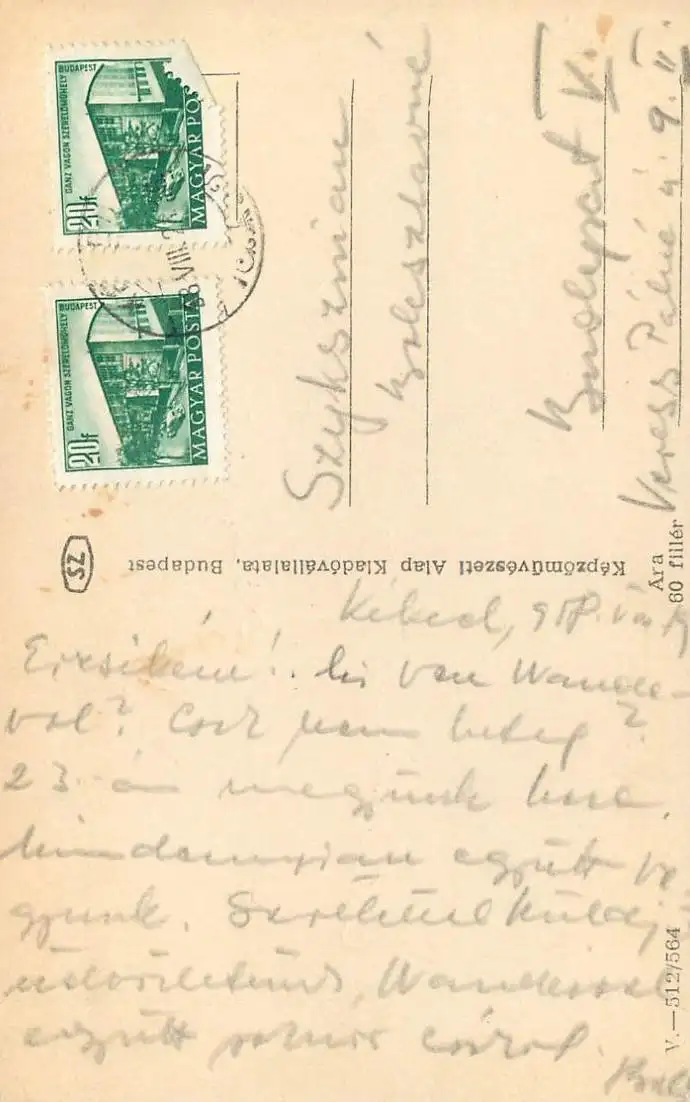 BUDAPEST
GANZ VAGON SZERELŐMŰHELY
20f
MAGYAR POSTA
58 VIII. 2
BUDAPEST
GANZ VAGON SZERELŐMŰHELY
20f
MAGYAR POSTA
Szykszmian
Boleszlavné
Budapest V.
Veress Pálné u. 9. II.
Ára
60 fillér
Képzőművészeti Alap Kiadóvállalata, Budapest
SZ
Kéked, 958.
Erzsikém! Mi van Wandá-
val? Csak nem beteg?
23-án megyünk haza,
mindannyian együtt va-
gyunk. Szeretettel küldj
üdvözletünk, Wandával
együtt sokszor csókol.
V.—512/564